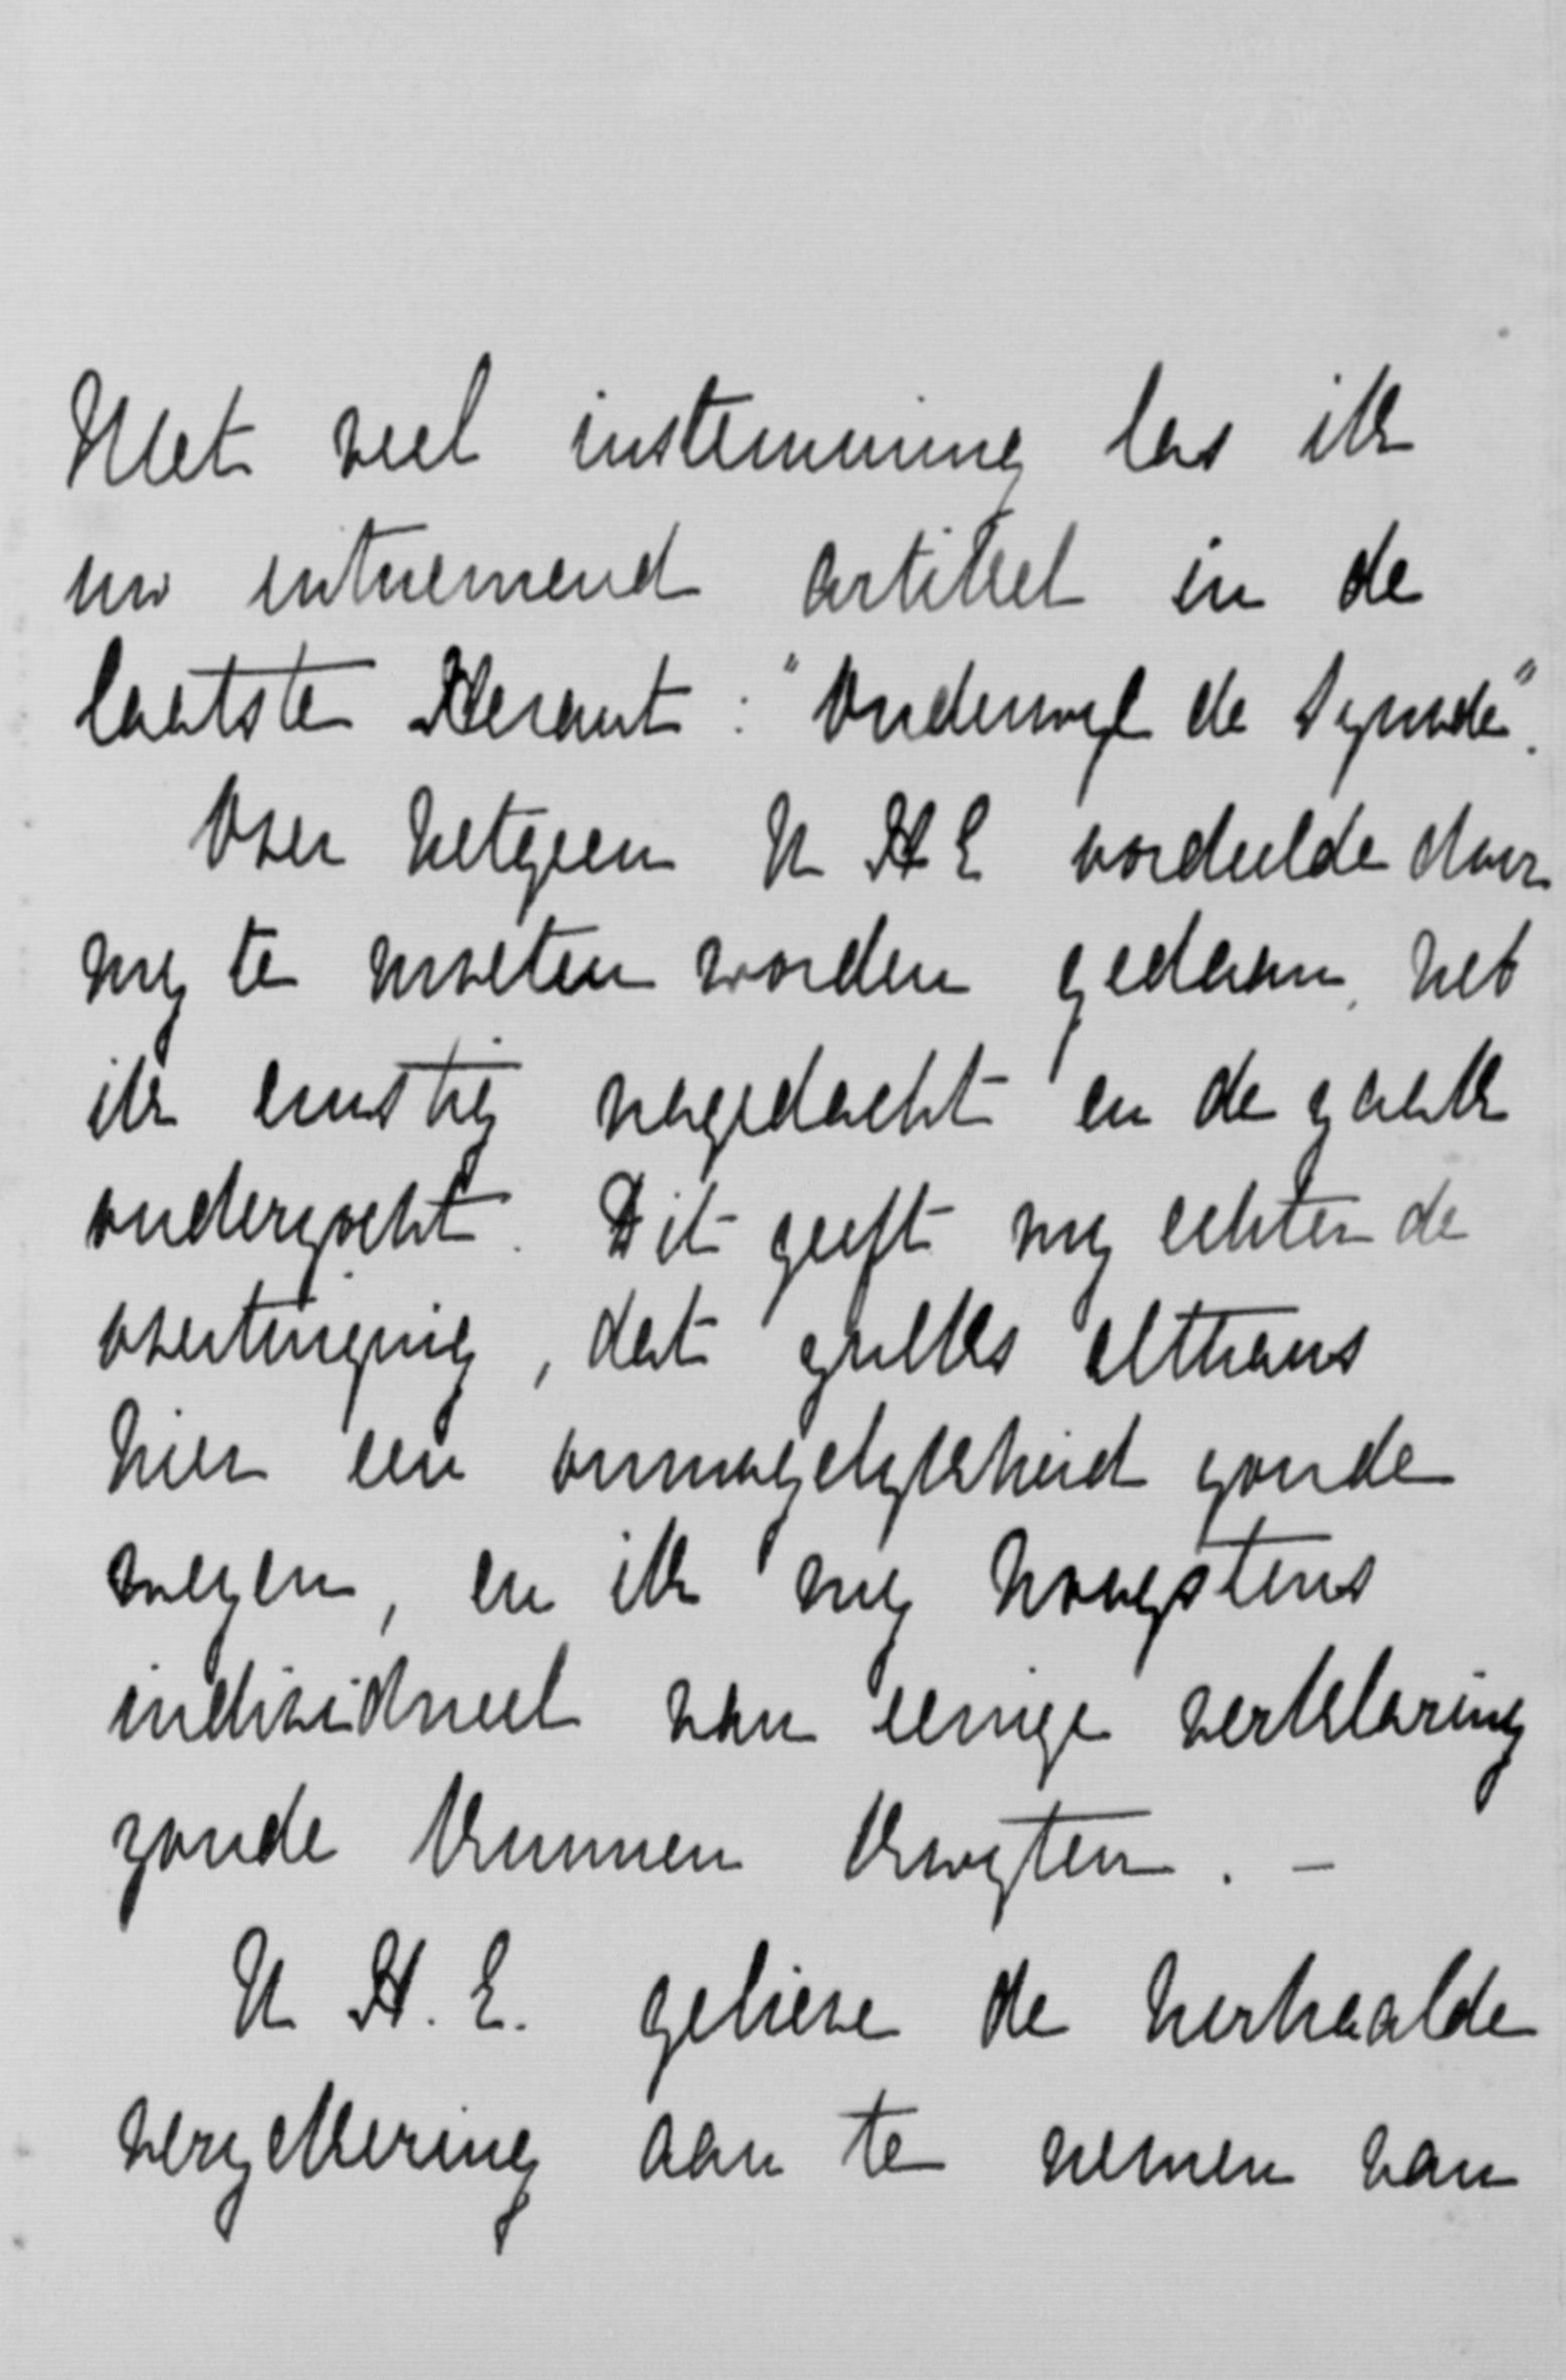 Met veel instemming las ik
uw uitnemend artikel in de
laatste Heraut: "Onderwyl de Synode".
Over hetgeen U H E oordeelde door
my te moeten worden gedaan, heb
ik ernstig nagedacht en de zaak
onderzocht. Dit geeft my echter de
overtuiging, dat zulks althans
hier een onmogelykheid zoude
wezen, en ik my hoogstens
individueel van eenige verklaring
zoude kunnen kwyten. -
U H. E. gelieve de herhaalde
verzekering aan te nemen van